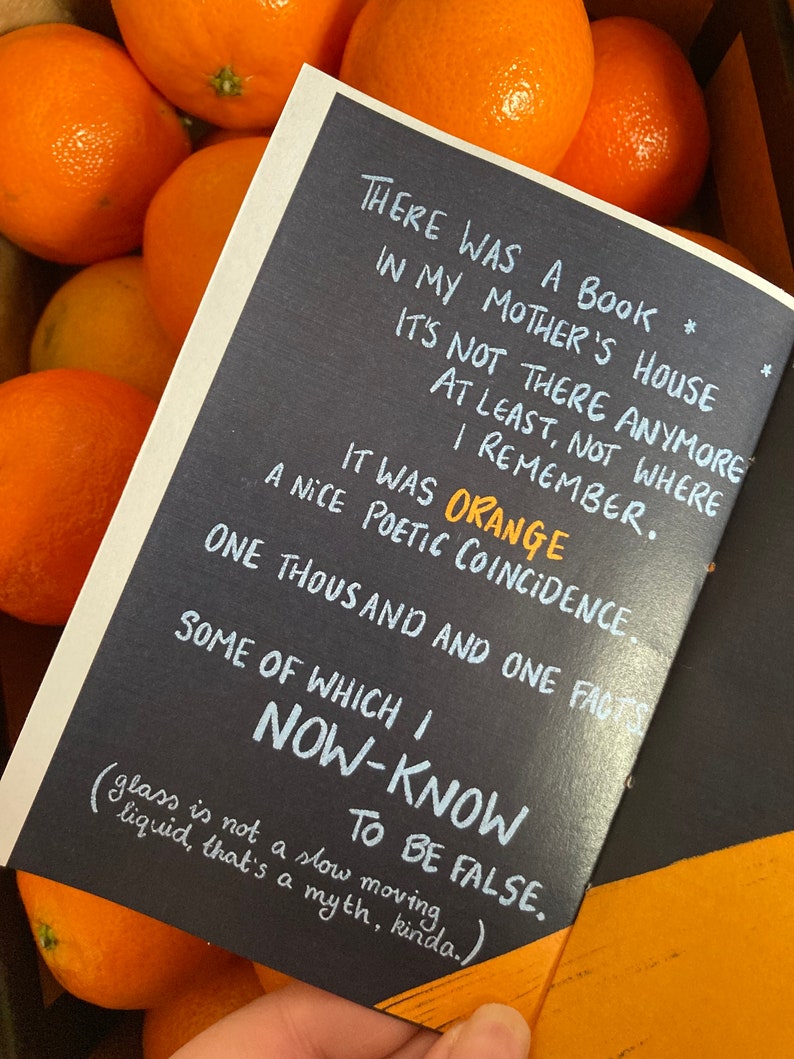 THERE WAS A BOOK
IN MY MOTHER'S HOUSE
IT'S NOT THERE ANYMORE
AT LEAST, NOT WHERE
I REMEMBER.
IT WAS ORANGE
A NICE POETIC COINCIDENCE.
ONE THOUSAND AND ONE FACTS.
SOME OF WHICH I
NOW-KNOW
TO BE FALSE.
(glass is not a slow moving
liquid, that's a myth, kinda.)